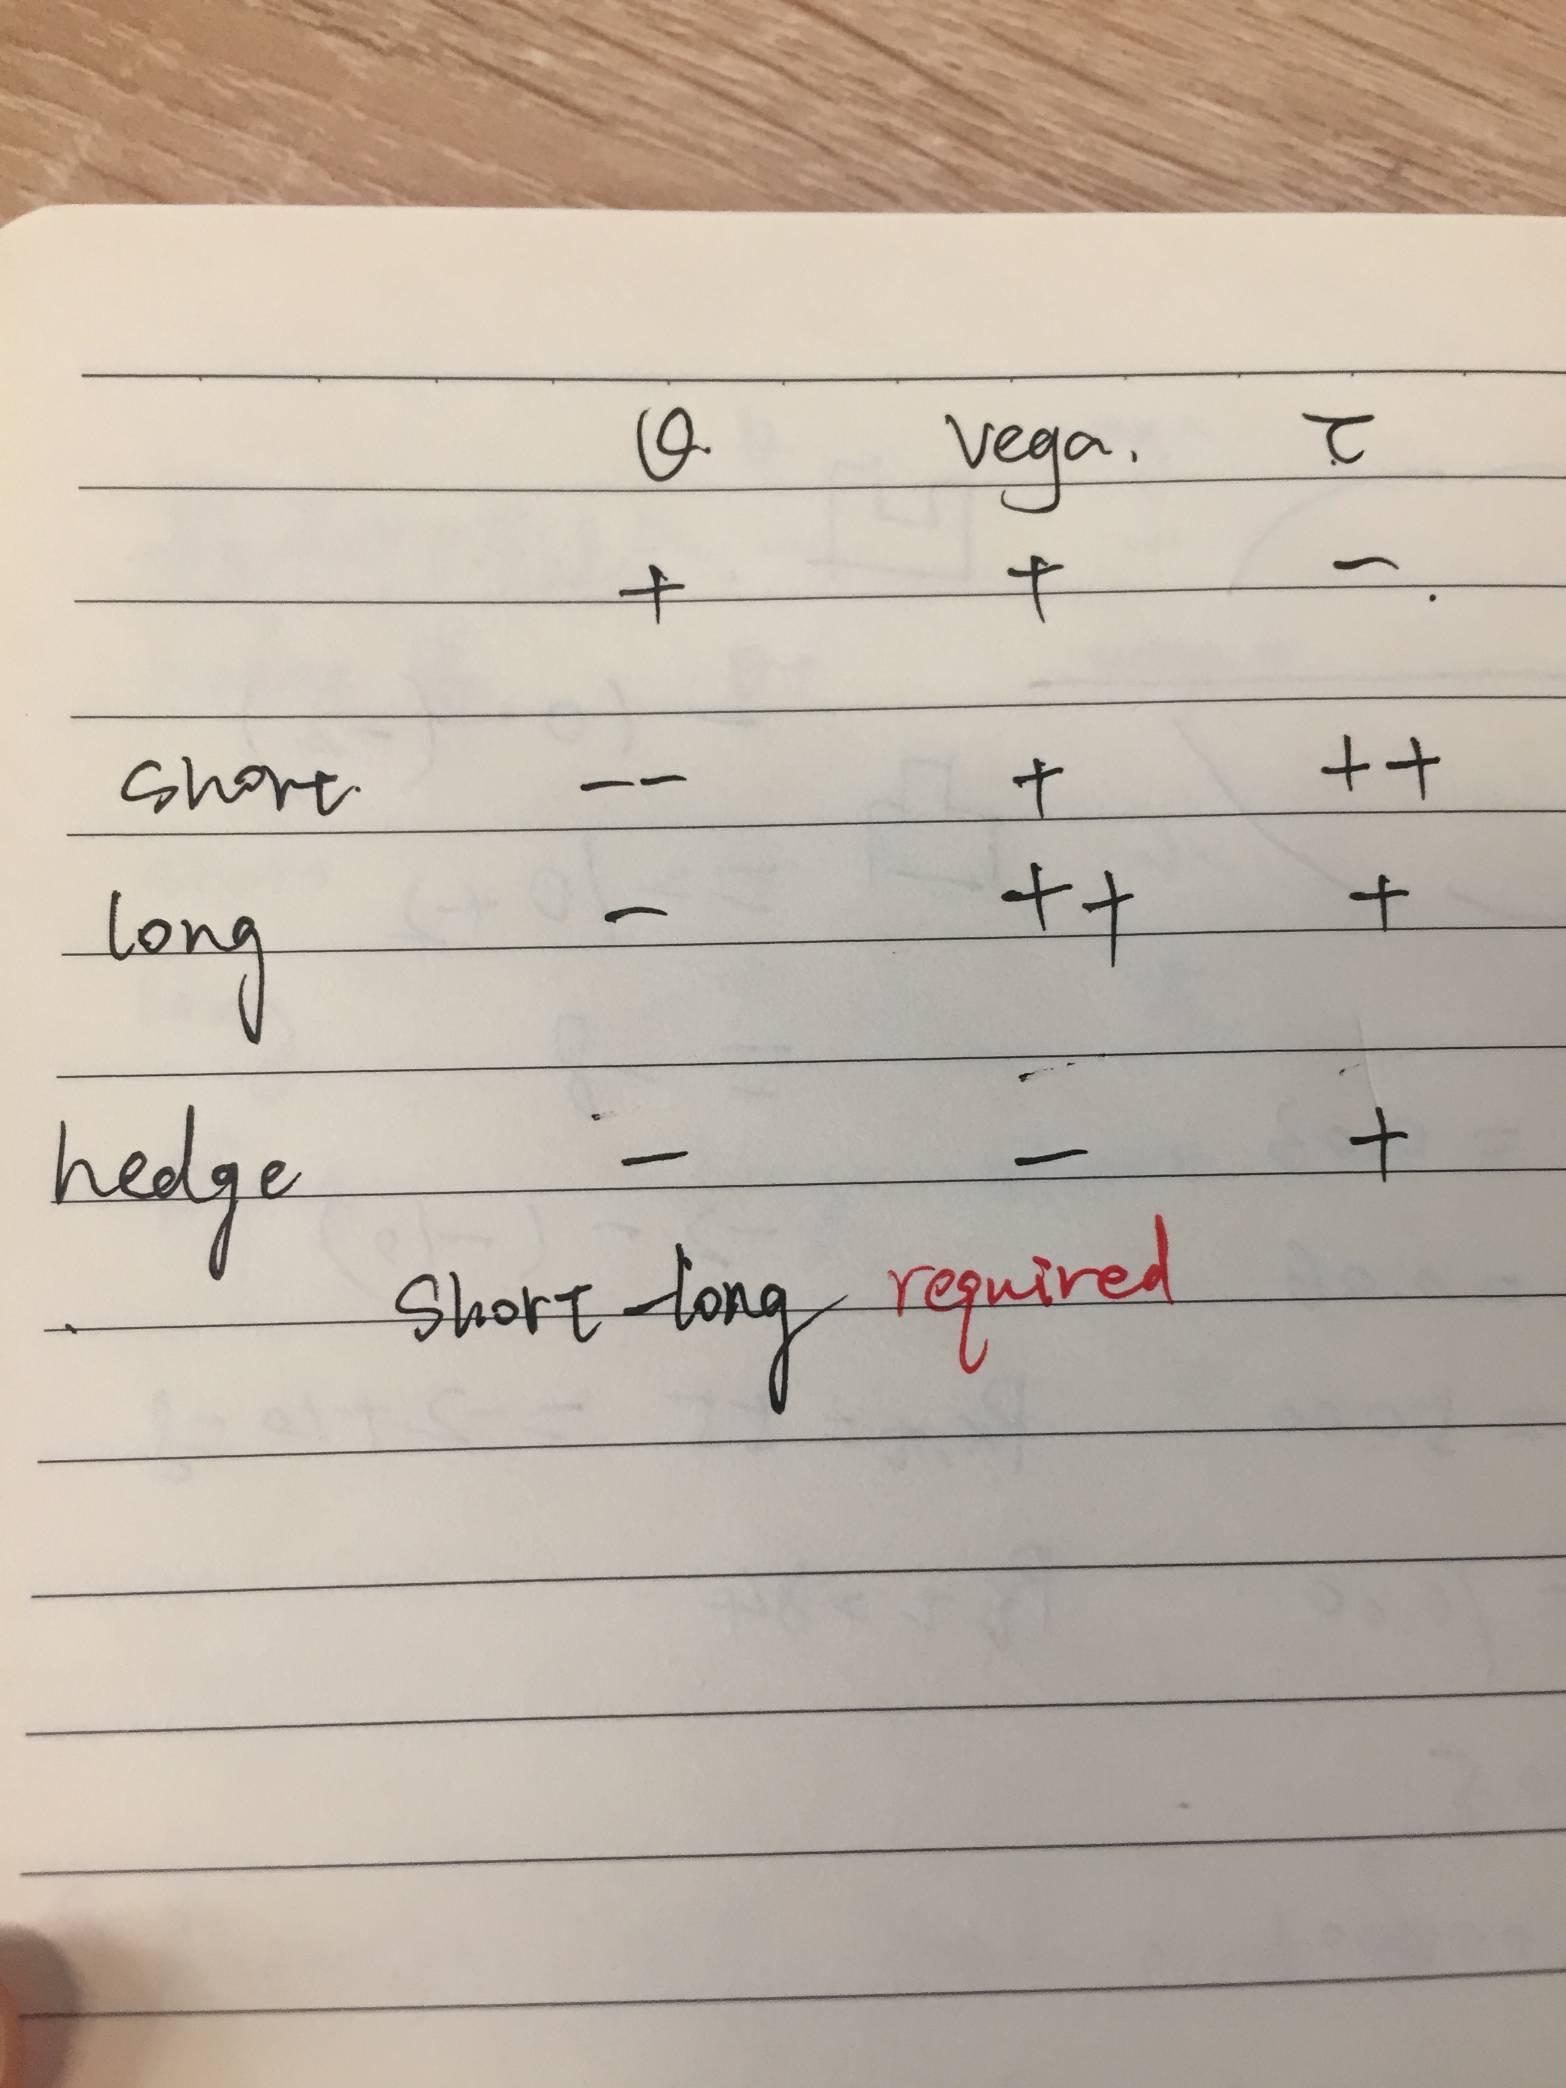 θ vega. τ
+ + -
short. -- + ++
long - ++ +
hedge - - +
short - long required